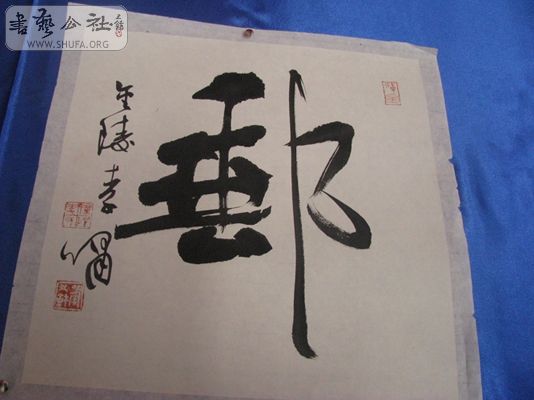 郵
金陵李啸
書藝公社
WWW.SHUFA.ORG